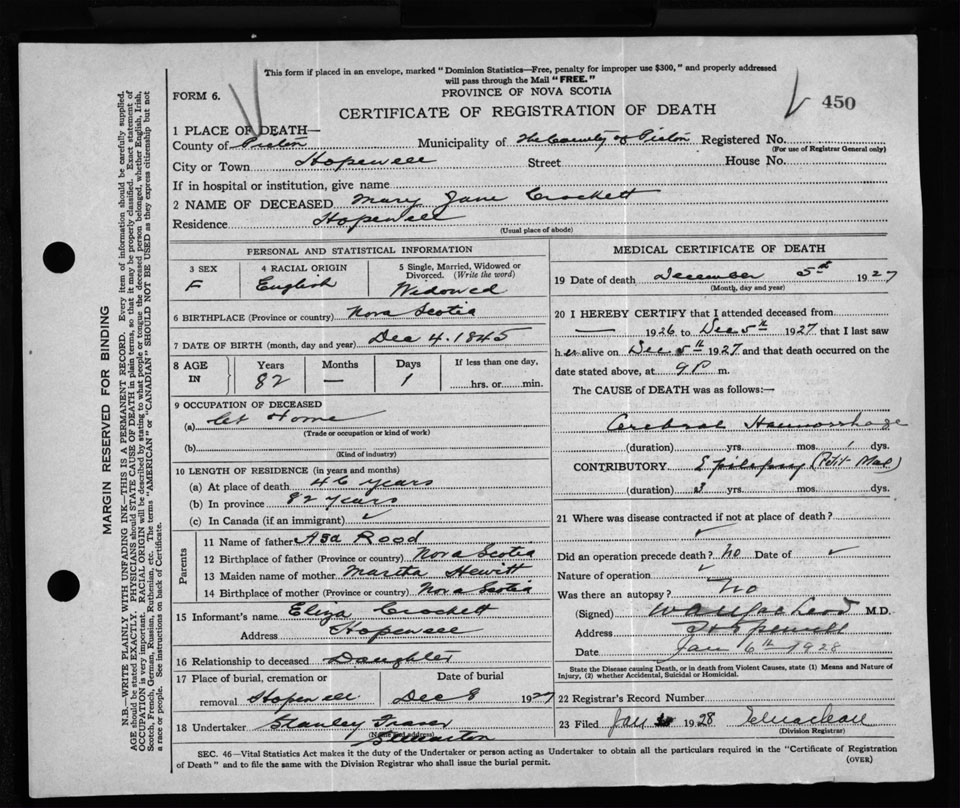 This form if placed in an envelope, marked "Dominion Statistics—Free, penalty for improper use $300," and properly addressed
will pass through the Mail "FREE."
FORM 6.
PROVINCE OF NOVA SCOTIA
CERTIFICATE OF REGISTRATION OF DEATH
450
1 PLACE OF DEATH—
County of Pictou Municipality of The County of Pictou Registered No.
(For use of Registrar General only)
City or Town Hopewell Street House No.
If in hospital or institution, give name
2 NAME OF DECEASED Mary Jane Crockett
Residence Hopewell
(Usual place of abode)
PERSONAL AND STATISTICAL INFORMATION
3 SEX
F
4 RACIAL ORIGIN
English
5 Single, Married, Widowed or
Divorced. (Write the word)
Widowed
6 BIRTHPLACE (Province or country) Nova Scotia
7 DATE OF BIRTH (month, day and year) Dec 4. 1845
8 AGE
IN
Years
82
Months
—
Days
1
If less than one day,
hrs. or min.
9 OCCUPATION OF DECEASED
(a) At Home
(Trade or occupation or kind of work)
(b)
(Kind of industry)
10 LENGTH OF RESIDENCE (in years and months)
(a) At place of death 46 years
(b) In province 82 years
(c) In Canada (if an immigrant)
Parents
11 Name of father Asa Rood
12 Birthplace of father (Province or country) Nova Scotia
13 Maiden name of mother Martha Hewitt
14 Birthplace of mother (Province or country) Nova Scotia
15 Informant's name Eliza Crockett
Address Hopewell
16 Relationship to deceased Daughter
17 Place of burial, cremation or
removal Hopewell
Date of burial
Dec 8 1927
18 Undertaker Stanley Fraser
(Name and address)
MEDICAL CERTIFICATE OF DEATH
19 Date of death December 5th 1927
(Month, day and year)
20 I HEREBY CERTIFY that I attended deceased from
— 1926 to Dec 5th 1927 that I last saw
her alive on Dec 5th 1927 and that death occurred on the
date stated above, at 9 P m.
The CAUSE of DEATH was as follows:—
Cerebral Haemorrhage
(duration) yrs. mos. 1 dys.
CONTRIBUTORY Epilepsy (Petit Mal)
(duration) 3 yrs. mos. dys.
21 Where was disease contracted if not at place of death?
Did an operation precede death? No Date of
Nature of operation
Was there an autopsy? No
(Signed) M.D.
Address Hopewell
Date Jan 6th 1928
State the Disease causing Death, or in death from Violent Causes, state (1) Means and Nature of
Injury, (2) whether Accidental, Suicidal or Homicidal.
22 Registrar's Record Number
23 Filed Jan 1928
(Division Registrar)
SEC. 46—Vital Statistics Act makes it the duty of the Undertaker or person acting as Undertaker to obtain all the particulars required in the "Certificate of Registration
of Death" and to file the same with the Division Registrar who shall issue the burial permit.
(OVER)
MARGIN RESERVED FOR BINDING
N.B.—WRITE PLAINLY WITH UNFADING INK—THIS IS A PERMANENT RECORD. Every item of information should be carefully supplied.
AGE should be stated EXACTLY. PHYSICIANS should STATE CAUSE OF DEATH in plain terms, so that it may be properly classified. Exact statement of
OCCUPATION is very important. RACIAL ORIGIN will be described by stating to what people or tongue the deceased person belonged, whether English, Irish,
Scotch, French, German, Russian, Ruthenian, etc. The terms "AMERICAN" or "CANADIAN" SHOULD NOT BE USED as they express citizenship but not
a race or people. See instructions on back of Certificate.